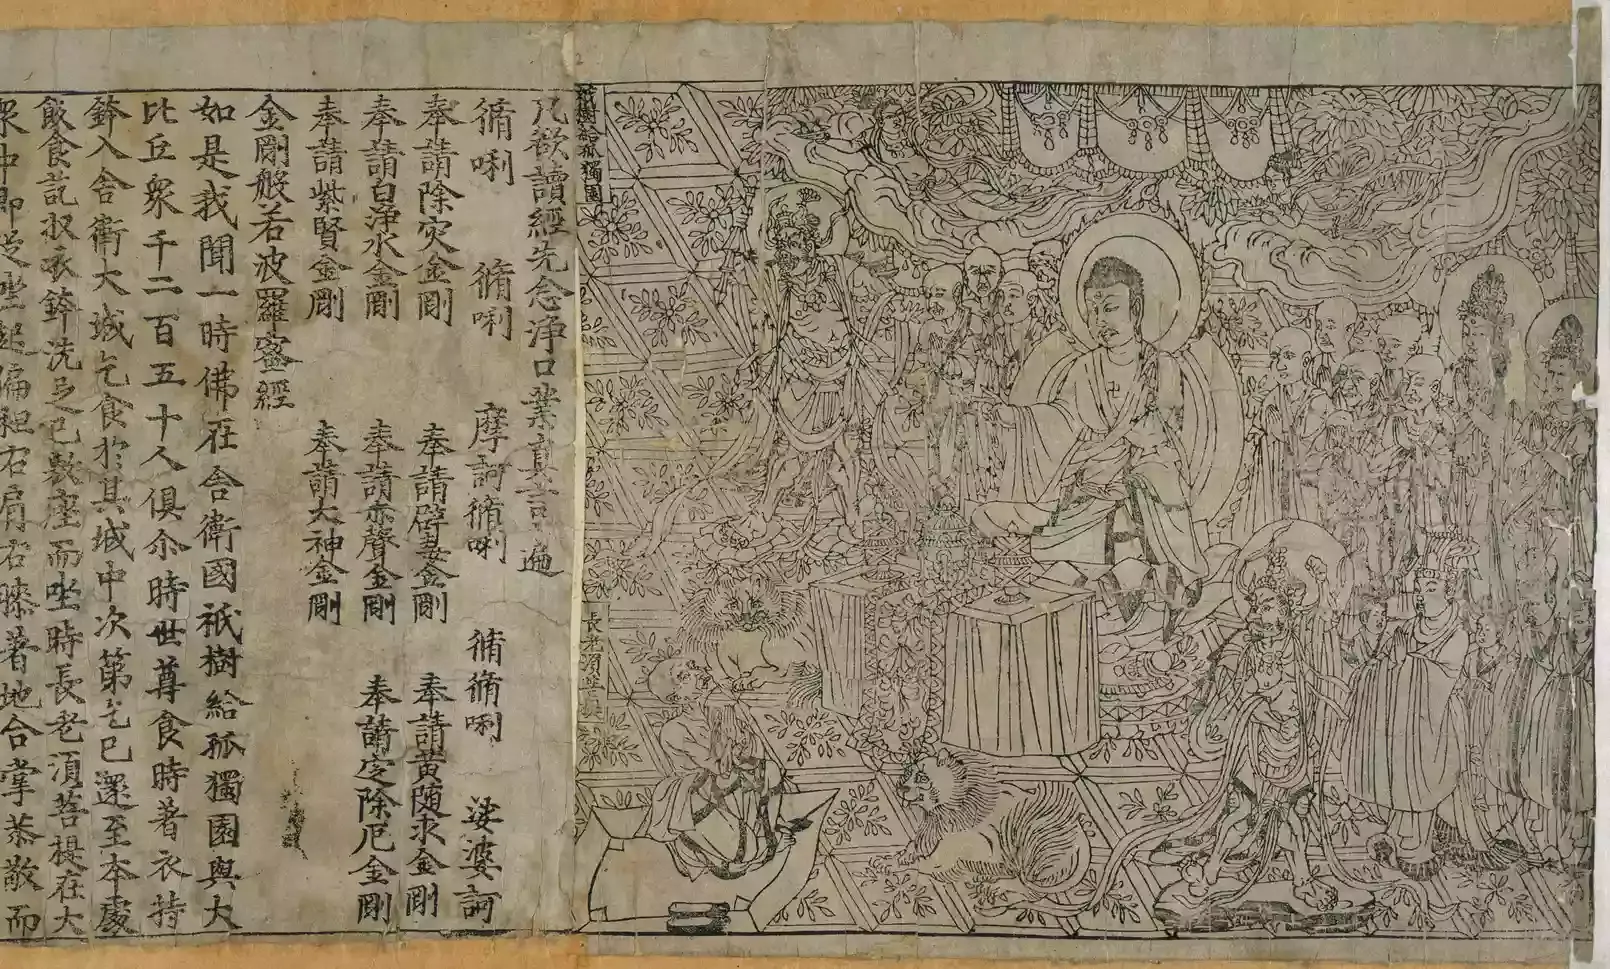 祇樹給孤獨園
長老須菩提
凡欲讀經先念淨口業真言一遍
脩唎 脩唎 摩訶脩唎 脩脩唎 娑婆訶
奉請除災金剛 奉請辟毒金剛 奉請黃隨求金剛
奉請白淨水金剛 奉請赤聲金剛 奉請定除厄金剛
奉請紫賢金剛 奉請大神金剛
金剛般若波羅蜜經
如是我聞一時佛在舍衛國祇樹給孤獨園與大
比丘衆千二百五十人俱尒時世尊食時著衣持
鉢入舍衛大城乞食於其城中次第乞已還至本處
飯食訖收衣鉢洗足已敷座而坐時長老須菩提在大
衆中即從坐起偏袒右肩右膝著地合掌恭敬而